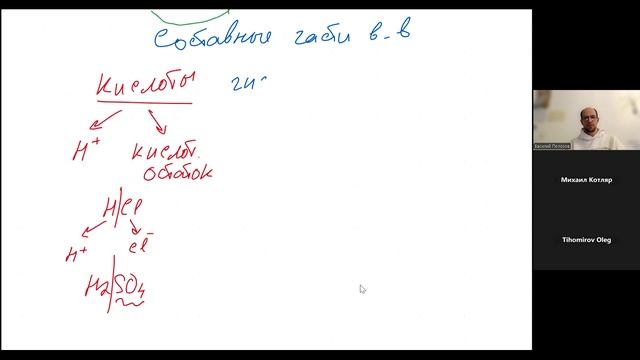 Составные части в-в
Кислоты ги
H⁺ кислот.
остаток
H|Cl
H⁺ Cl⁻
H₂|SO₄
Василий Пелосов
Михаил Котляр
Tihomirov Oleg